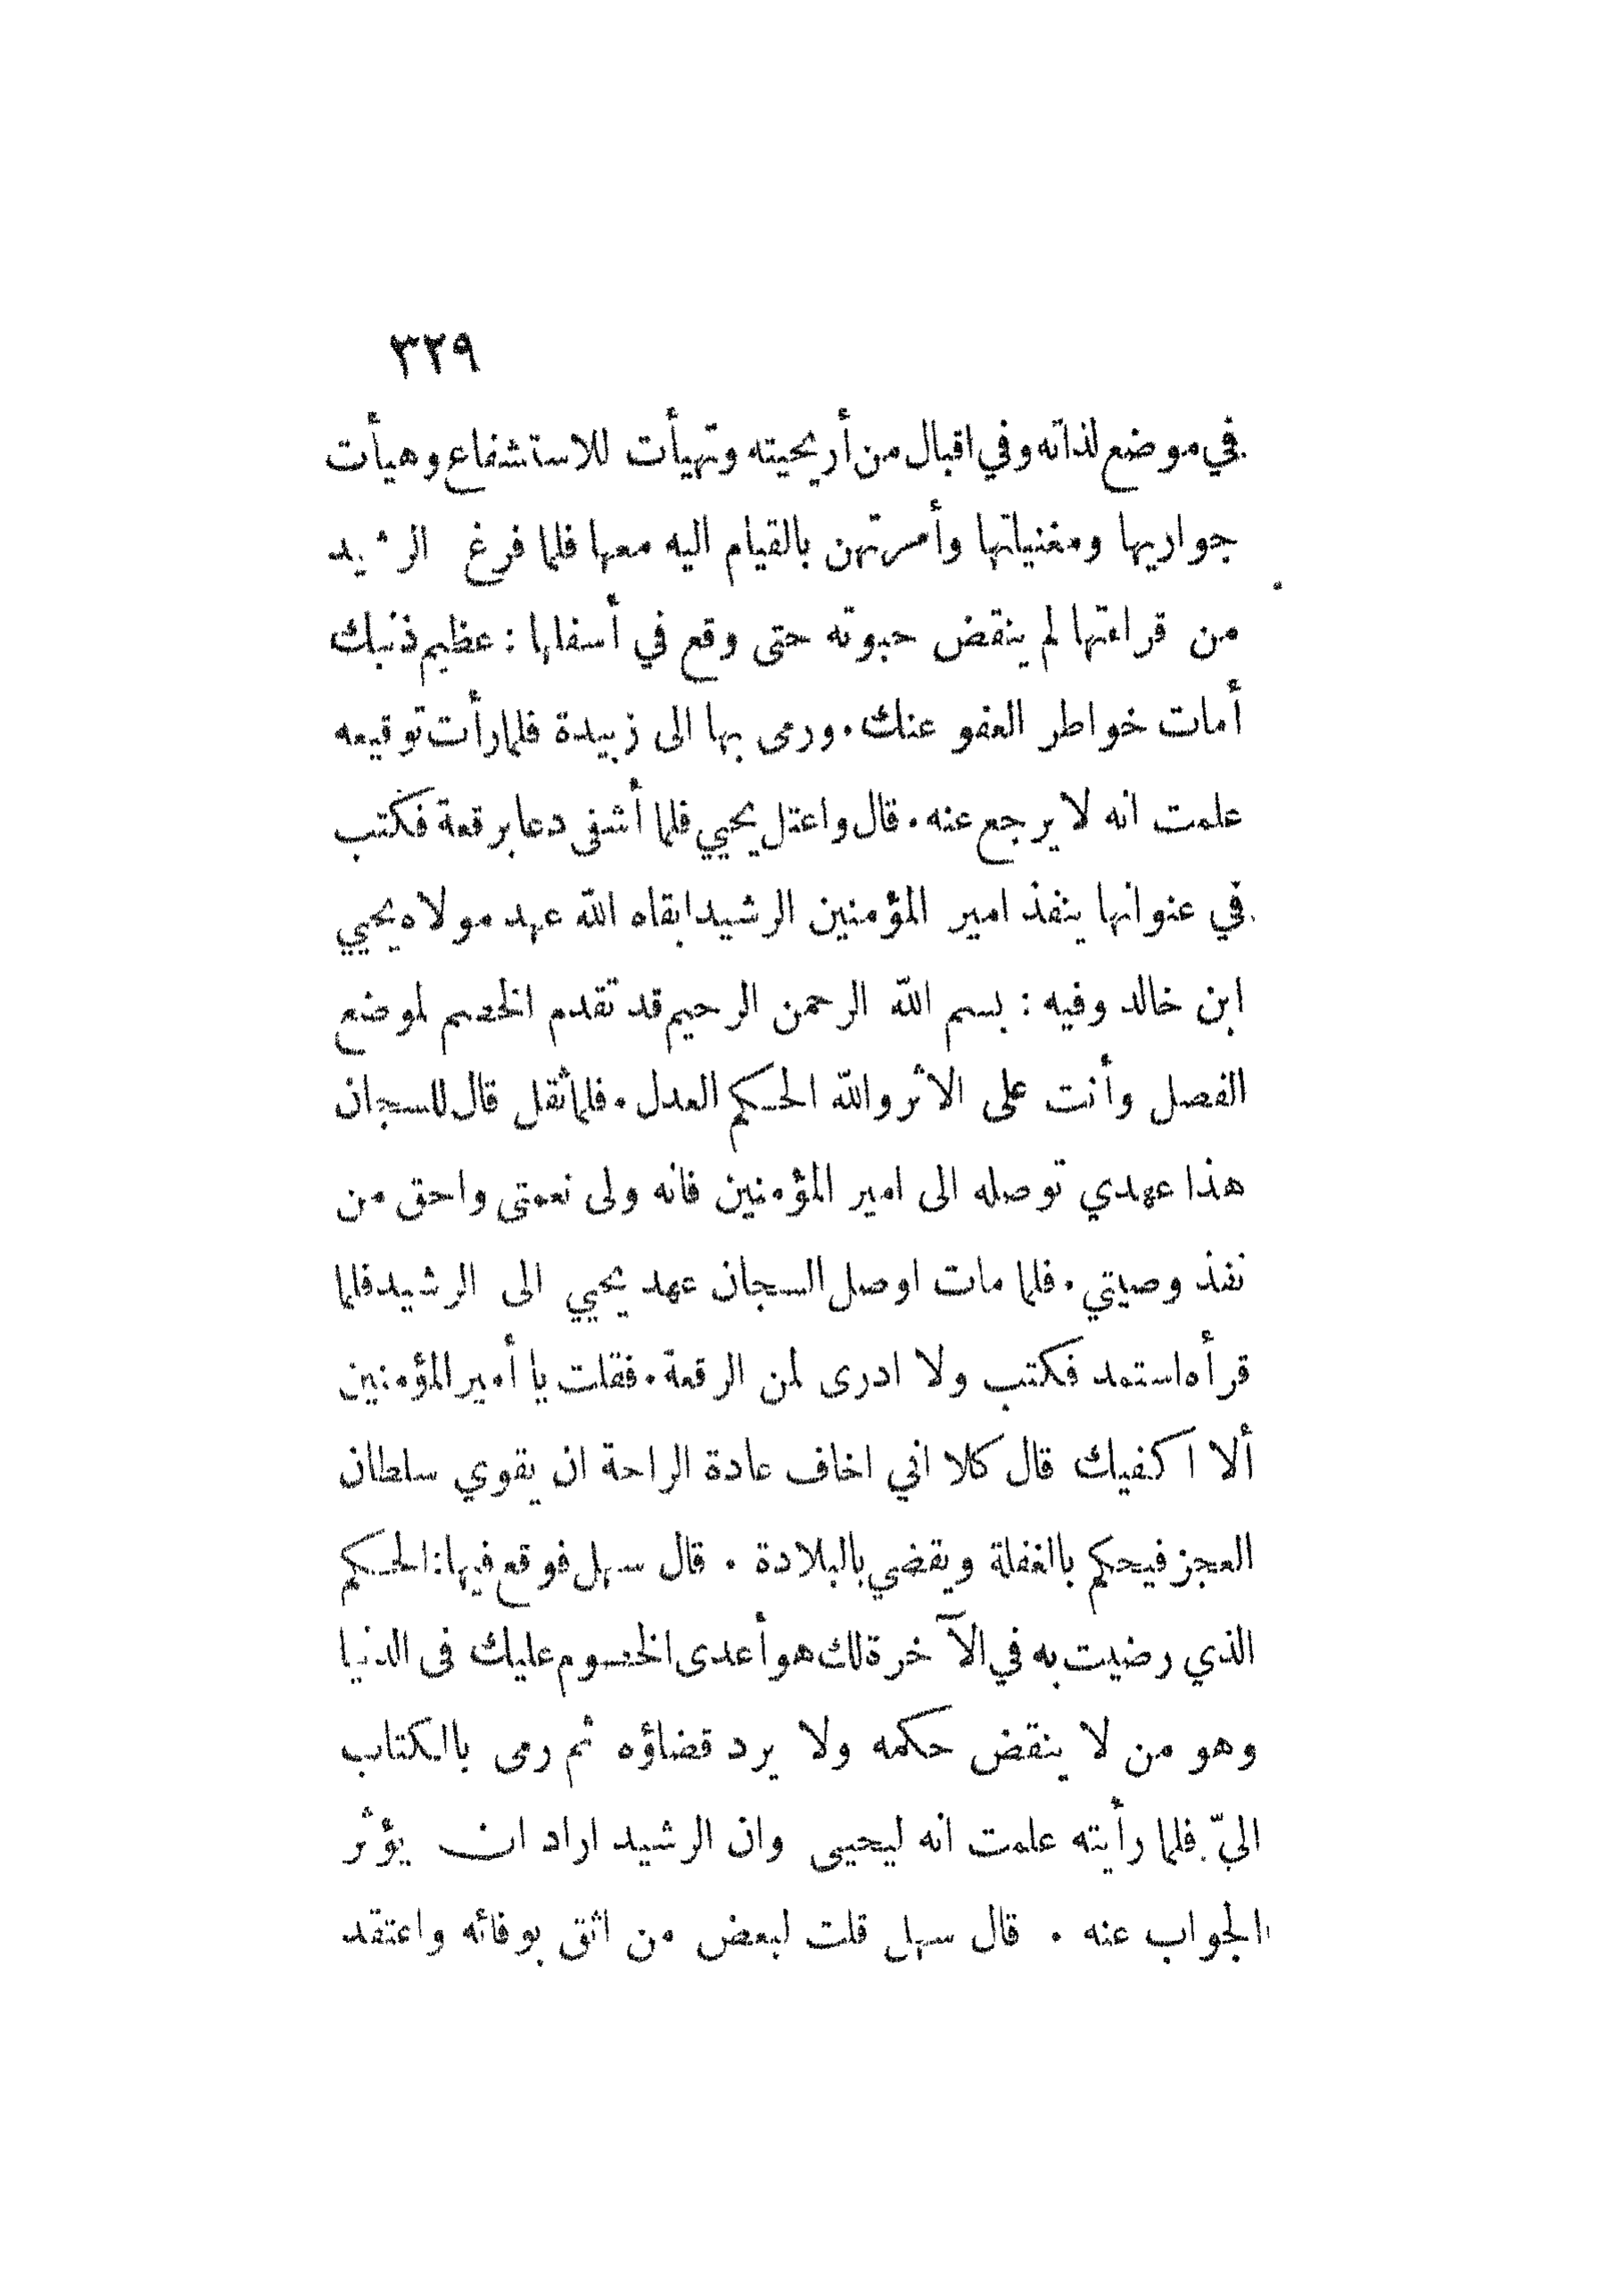 ٣٢٩
في موضع لذاته وفي اقبال من أريحيته وتهيأت للاستشفاع وهيأت
جواريها ومغنياتها وأمرتهن بالقيام اليه معها فلما فرغ الرشيد
من قراءتها لم ينقض حبوته حتى وقع في أسفلها : عظيم ذنبك
أمات خواطر العفو عنك . ورمى بها الى زبيدة فلما رأت توقيعه
علمت انه لا يرجع عنه . قال واعتل يحيي فلما أشفى دعا برقعة فكتب
في عنوانها ينفذ امير المؤمنين الرشيد ابقاه الله عهد مولاه يحيي
ابن خالد وفيه : بسم الله الرحمن الرحيم قد تقدم الخصم لموضع
الفصل وأنت على الاثر والله الحكم العدل . فلما ثقل قال للسجان
هذا عهدي توصله الى امير المؤمنين فانه ولى نعمتى واحق من
نفذ وصيتي . فلما مات اوصل السجان عهد يحيي الى الرشيد فلما
قرأه استمد فكتب ولا ادرى لمن الرقعة . فقلت يا أمير المؤمنين
ألا اكفيك قال كلا اني اخاف عادة الراحة ان يقوي سلطان
العجز فيحكم بالغفلة ويقضي بالبلادة . قال سهل فوقع فيها : الحكم
الذي رضيت به في الآخرة لك هو أعدى الخصوم عليك فى الدنيا
وهو من لا ينقض حكمه ولا يرد قضاؤه ثم رمى بالكتاب
اليّ فلما رأيته علمت انه ليحيى وان الرشيد اراد ان يؤثر
الجواب عنه . قال سهل قلت لبعض من اثق بوفائه واعتقد